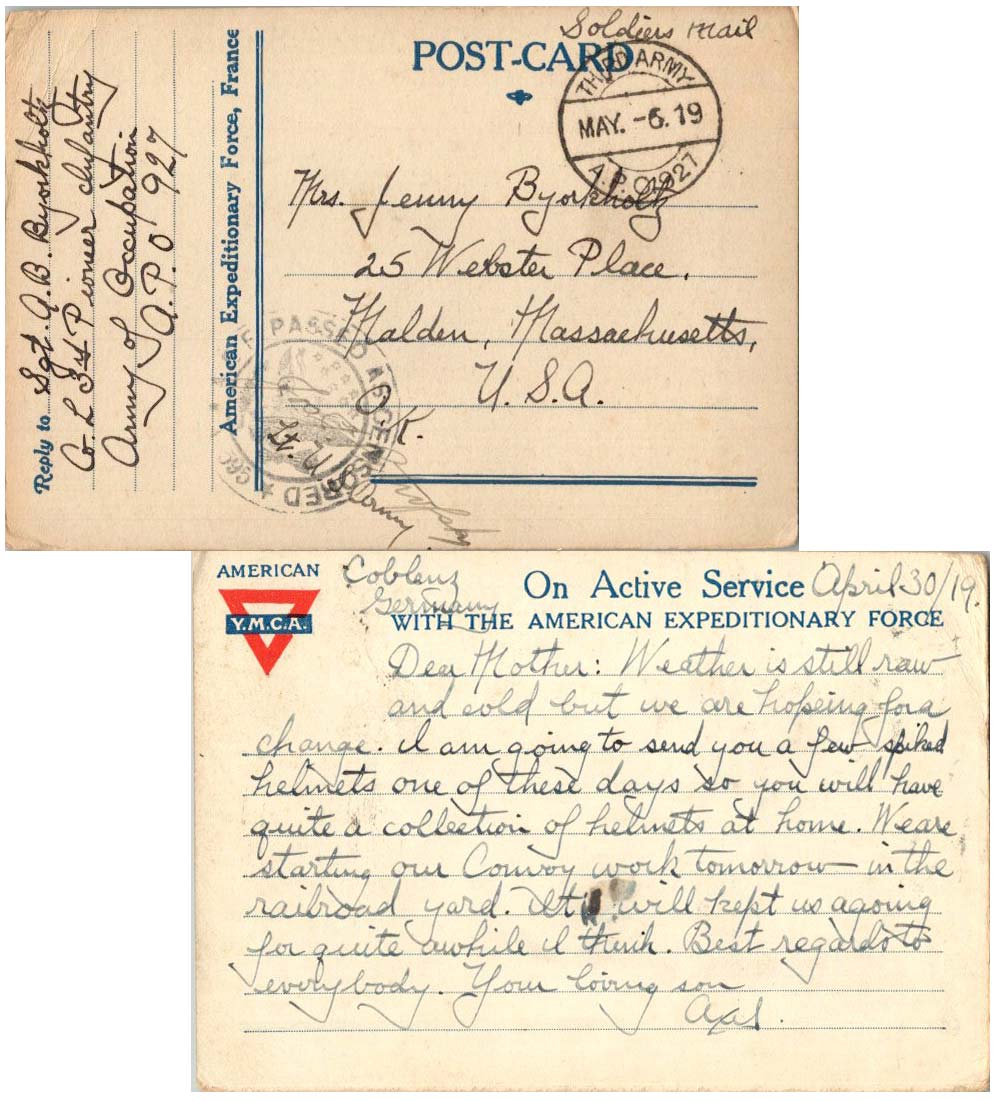 Soldiers Mail
POST-CARD
THIRD ARMY
MAY. -6. 19
A.P.O. 927
Mrs. Jenny Byorkholtz
25 Webster Place,
Malden, Massachusetts,
U.S.A.
O.K.
PASSED AS CENSORED
American Expeditionary Force, France
Reply to Sgt. A.B. Byorkholtz
Co. L 3rd Pioneer Infantry
Army of Occupation
A.P.O 927
AMERICAN
Y.M.C.A.
Coblenz
Germany
On Active Service April 30/19.
WITH THE AMERICAN EXPEDITIONARY FORCE
Dear Mother: Weather is still raw
and cold but we are hopeing for a
change. I am going to send you a few spiked
helmets one of these days so you will have
quite a collection of helmets at home. We are
starting our Convoy work tomorrow in the
railroad yard. It will kept us agoing
for quite awhile I think. Best regards to
everybody. Your loving son
Axel.